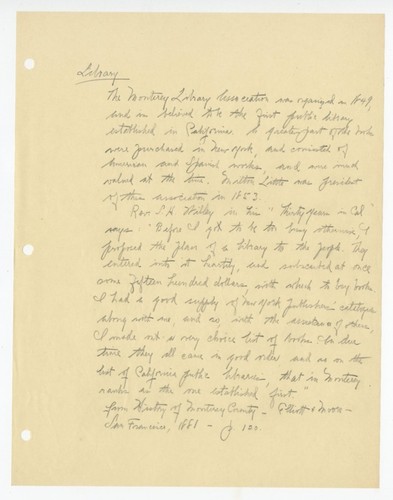 Library
The Monterey Library Association was organized in 1849,
and is believed to be the first public library
established in California. The greater part of the books
were purchased in New York, and consisted of
American and Spanish works, and were much
valued at the time. Milton Little was president
of this association in 1853.
Rev. S.H. Willey in his "Thirty Years in Cal"
says: "Before I got to be too busy otherwise, I
proposed the plan of a library to the people. They
entered into it heartily, and subscribed at once
some fifteen hundred dollars, with which to buy books.
I had a good supply of New York publishers' catalogues
along with me, and so, with the assistance of others,
I made out a very choice list of books. In due
time they all came in good order and so on the
list of California public libraries, that in Monterey
ranks as the one established first."
from History of Monterey County - Elliott & Moore -
San Francisco, 1881 - p 120.